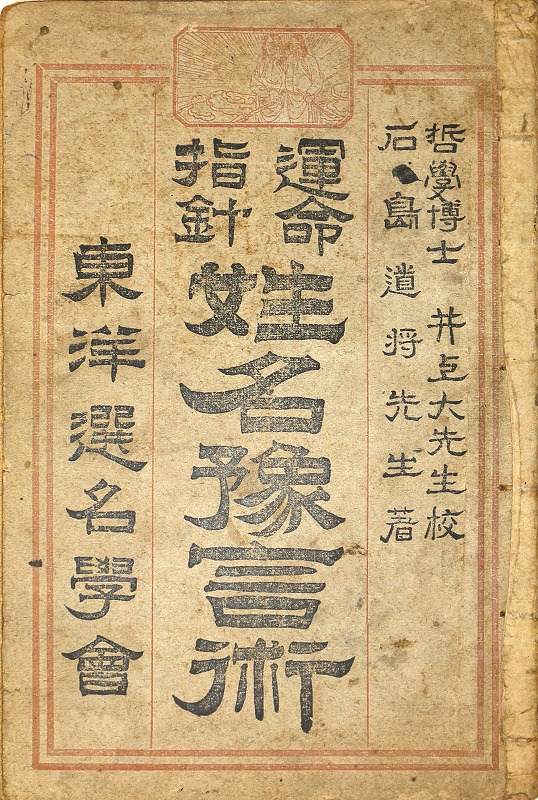 哲學博士 井上大先生校
石島 将先生著
運命
指針
姓名豫言術
東洋選名學會